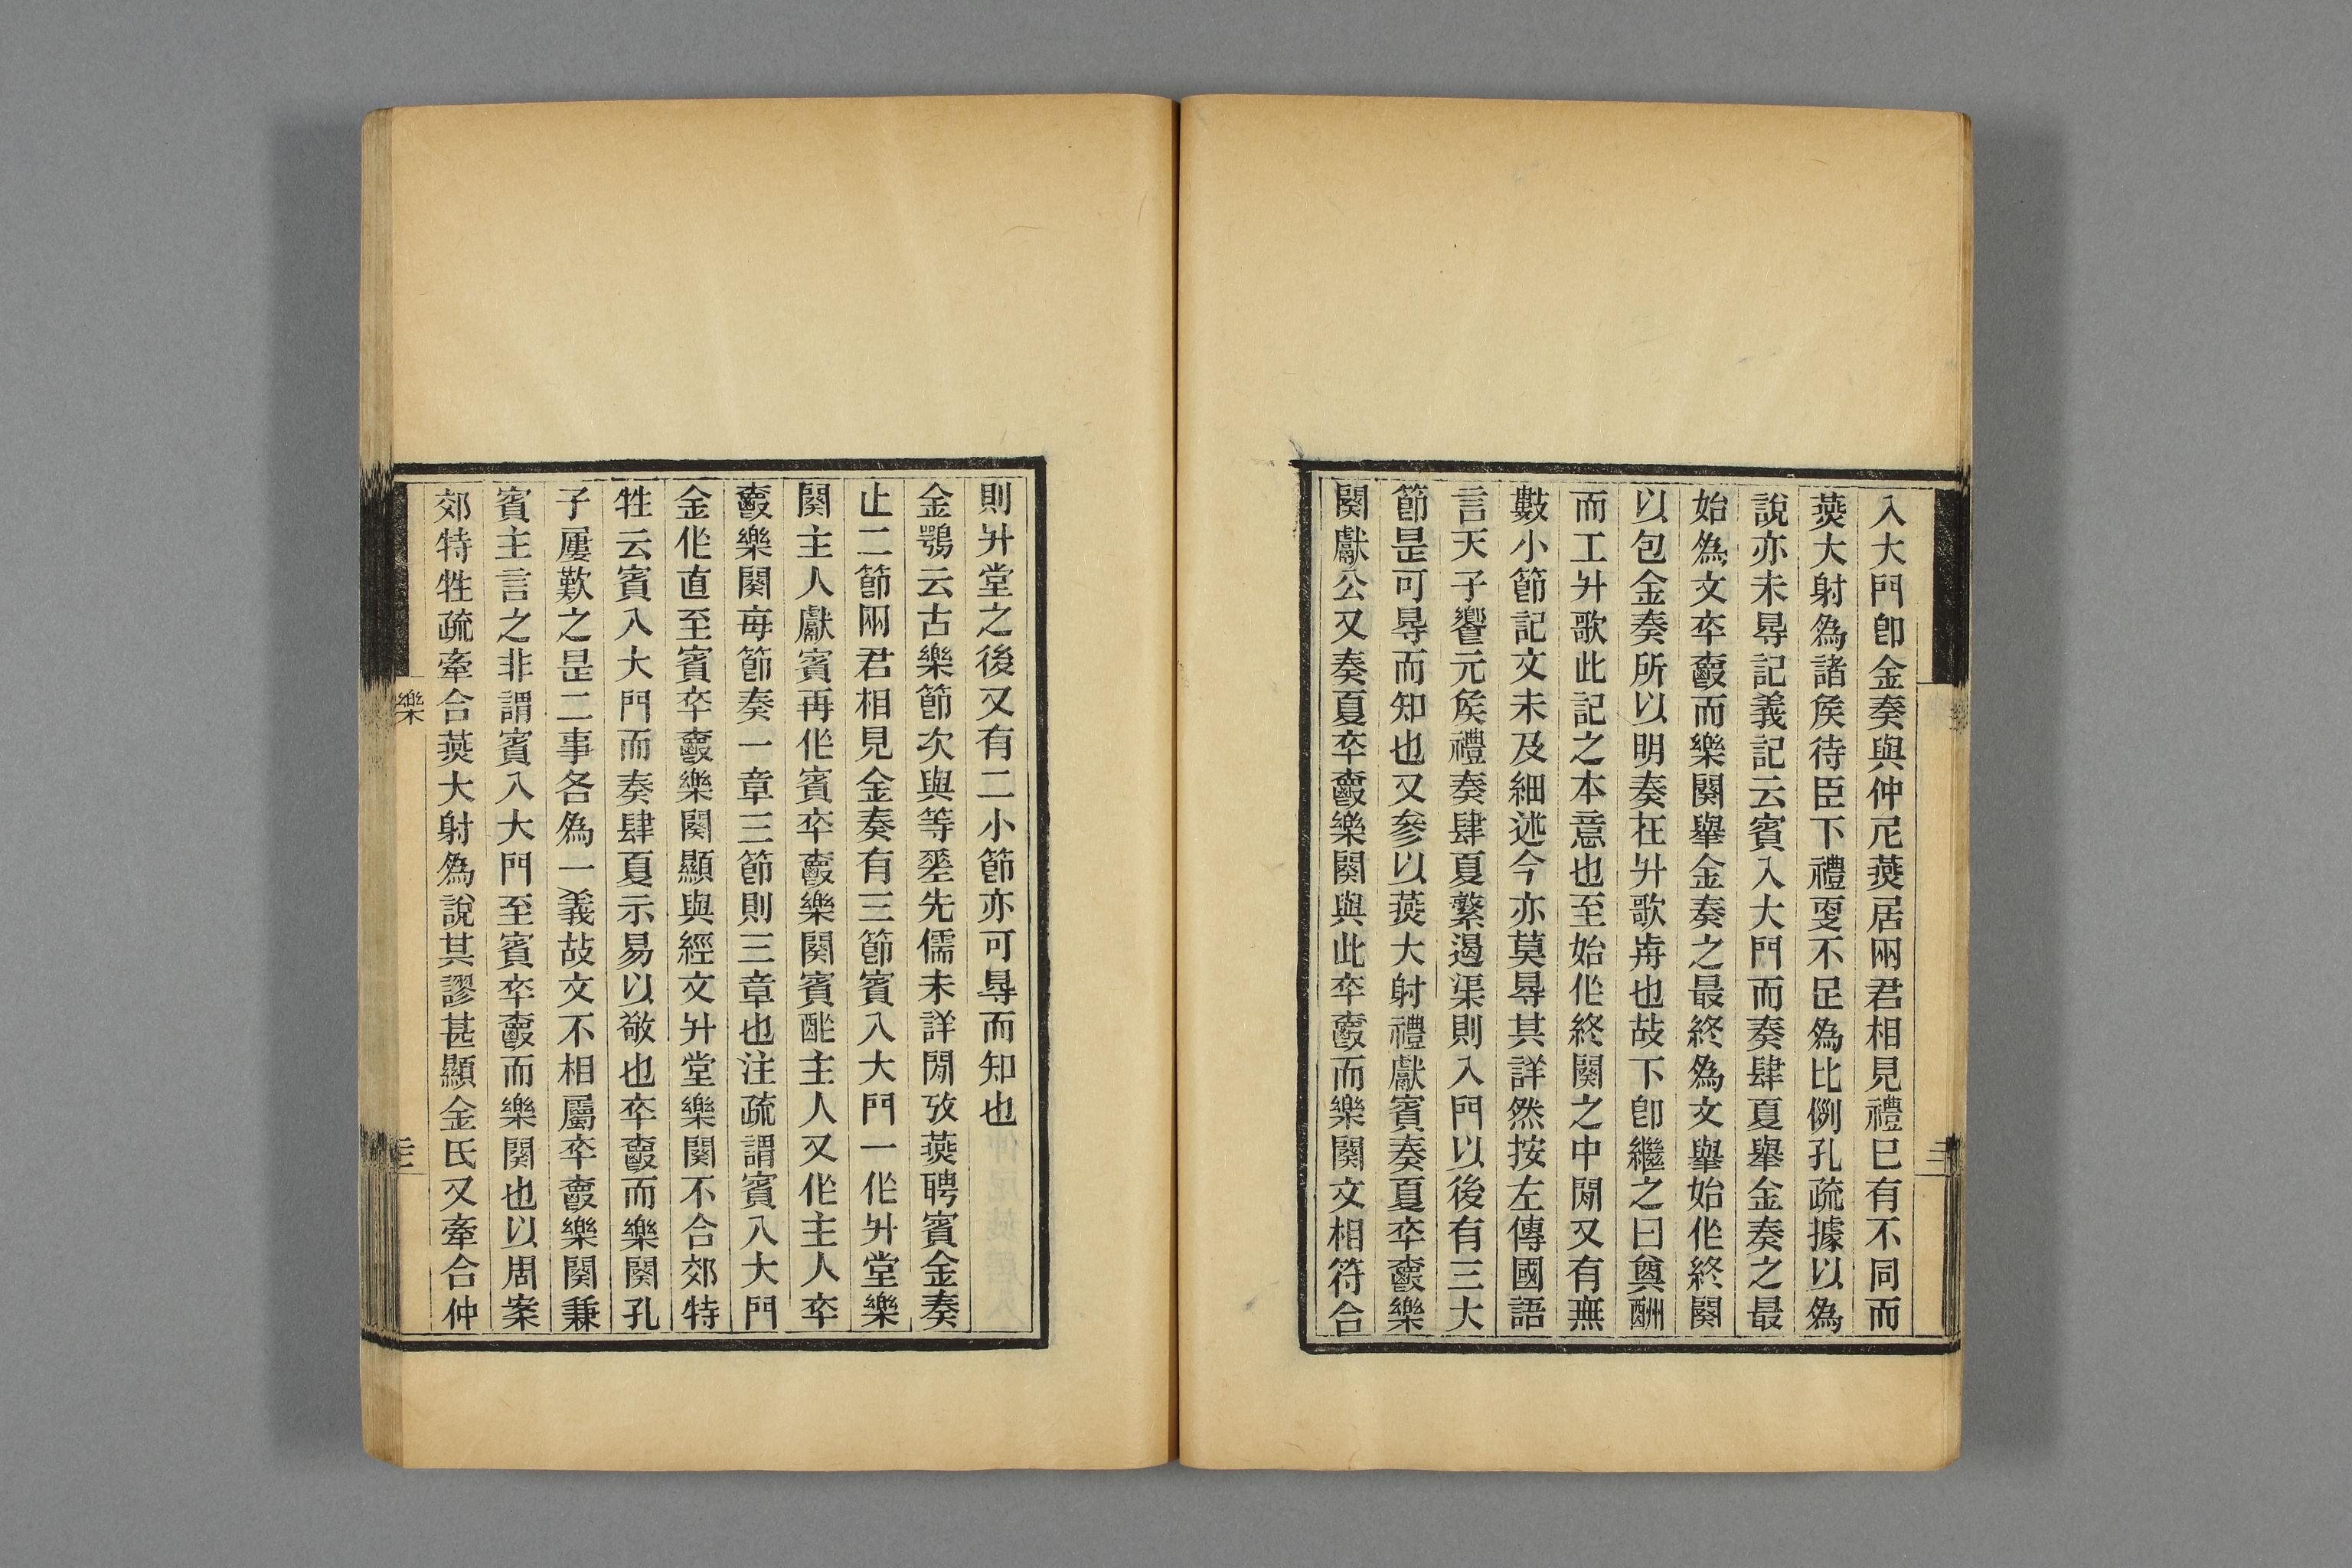 入大門卽金奏與仲尼燕居兩君相見禮已有不同而
燕大射爲諸矦待臣下禮叓不足爲比例孔疏據以爲
說亦未㝵記義記云賓入大門而奏肆夏舉金奏之最
始爲文卒�Ċ而樂闋舉金奏之最終爲文舉始作終闋
以包金奏所以明奏在升歌歬也故下卽繼之曰奠酬
而工升歌此記之本意也至始作終闋之中閒又有無
數小節記文未及細述今亦莫㝵其詳然按左傳國語
言天子饗元矦禮奏肆夏繁遏渠則入門以後有三大
節是可㝵而知也又參以燕大射禮獻賓奏夏卒爵樂
闋獻公又奏夏卒爵樂闋與此卒爵而樂闋文相符合
則升堂之後又有二小節亦可㝵而知也
金鶚云古樂節次與等差先儒未詳閒攷燕聘賓金奏
止二節兩君相見金奏有三節賓入大門一作升堂樂
闋主人獻賓再作賓卒爵樂闋賓酢主人又作主人卒
爵樂闋每節奏一章三節則三章也注疏謂賓入大門
金作直至賓卒爵樂闋顯與經文升堂樂闋不合郊特
牲云賓入大門而奏肆夏示易以敬也卒爵而樂闋孔
子屢歎之是二事各爲一義故文不相屬卒爵樂闋兼
賓主言之非謂賓入大門至賓卒爵而樂闋也以周案
郊特牲疏牽合燕大射爲說其謬甚顯金氏又牽合仲
樂